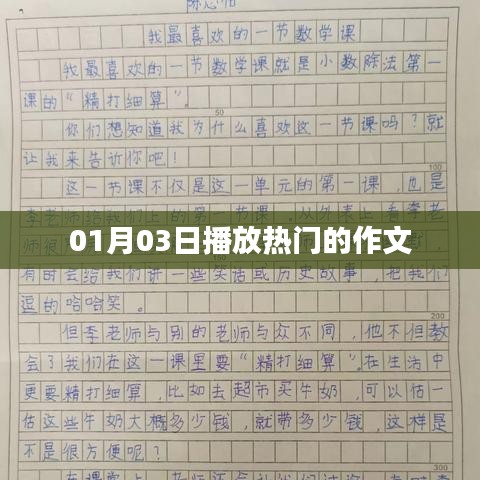 我最喜欢的一节数学课
我最喜欢的一节数学课就是小数除法第一
课的“精打细算”。
50
你们想知道我为什么喜欢这一节课吗？就
让我来告诉你吧！
100
这一节课不仅是这一单元的第一课，也是
李老师给我们上的第一
01月03日播放热门的作文
有时会给我们讲一些笑话或历史故事，把我们
逗的哈哈笑。
200
但李老师与别的老师与众不同，他不但教
会了我们在这一课里要“精打细算”。在生活中
更要精打细算，比如去超市买牛奶，可以估一
估这些牛奶大概多少钱，就带多少钱，这样是
不是很方便呢？
300